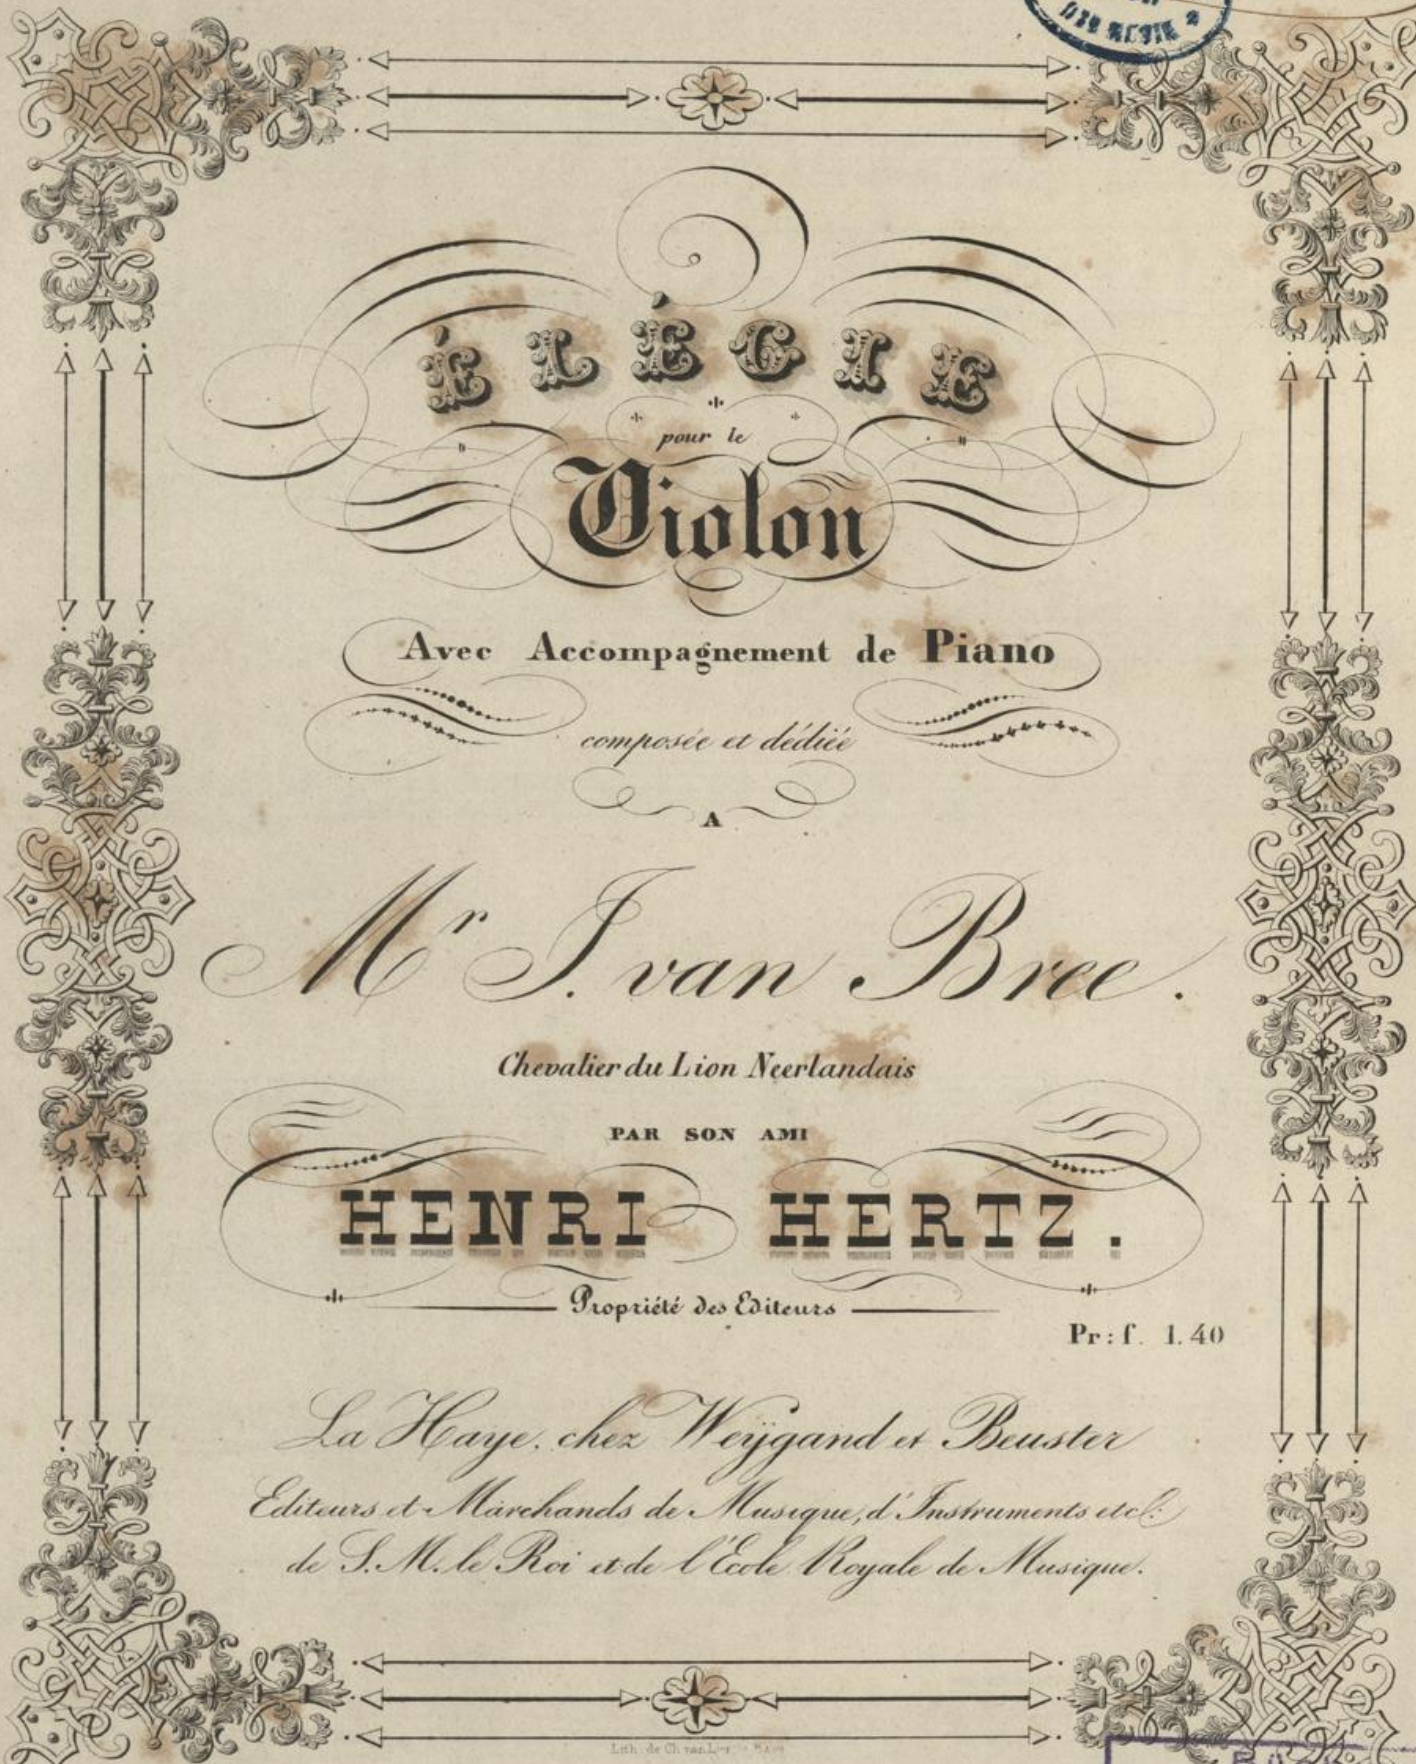 ÉLÉGIE
pour le
Violon
Avec Accompagnement de Piano
composée et dédiée
A
Mr J. van Bree.
Chevalier du Lion Neerlandais
PAR SON AMI
HENRI HERTZ.
Propriété des Editeurs
Pr: f. 1.40
La Haye, chez Weÿgand et Beuster
Editeurs et Marchands de Musique, d'Instruments etc:
de S. M. le Roi et de l'Ecole Royale de Musique.
Lith. de Ch. van